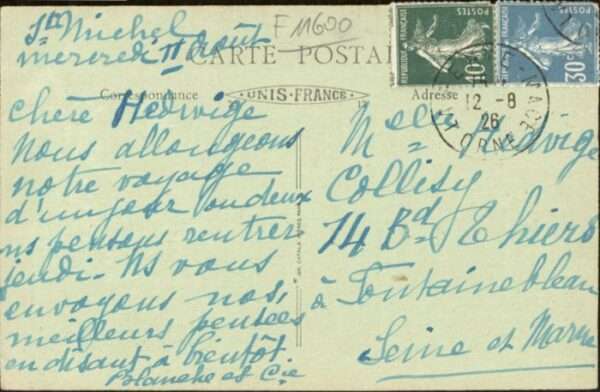 St Michel
mercredi 11 août
F 11600
CARTE POSTAL
Correspondance
UNIS-FRANCE
Adresse
chère Hedwige
nous allongeons
notre voyage
d'un jour ou deux
ns pensons rentrer
jeudi - Ns vous
envoyons nos,
meilleurs pensées
en disant à bientôt.
Blanche et Cie
REPUBLIQUE FRANÇAISE
POSTES
10c
REPUBLIQUE FRANÇAISE
POSTES
30c
12 -8
26
ORNE
Melle Hedwige
Collisy
14 Bd Thiers
à Fontainebleau
Seine et Marne